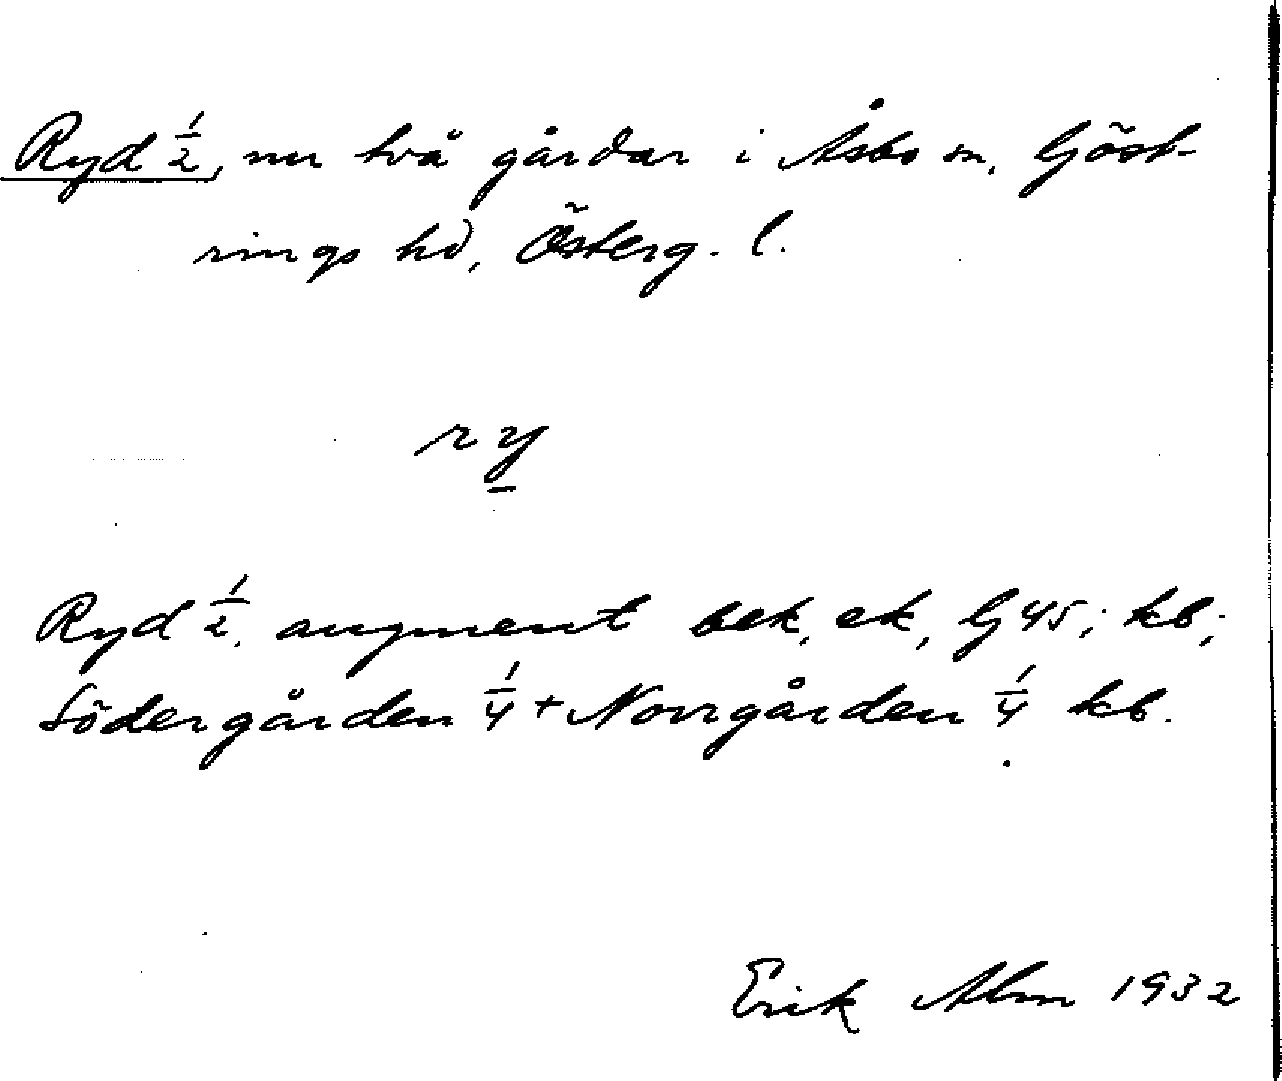 Ryd ½, nu två gårdar i Åsbo sn, Göst-
rings hd, Österg. l.
ry
Ryd ½, augment bek, ek, G 45; kb;
Södergården ¼ + Norrgården ¼ kb.
Erik Alm 1932